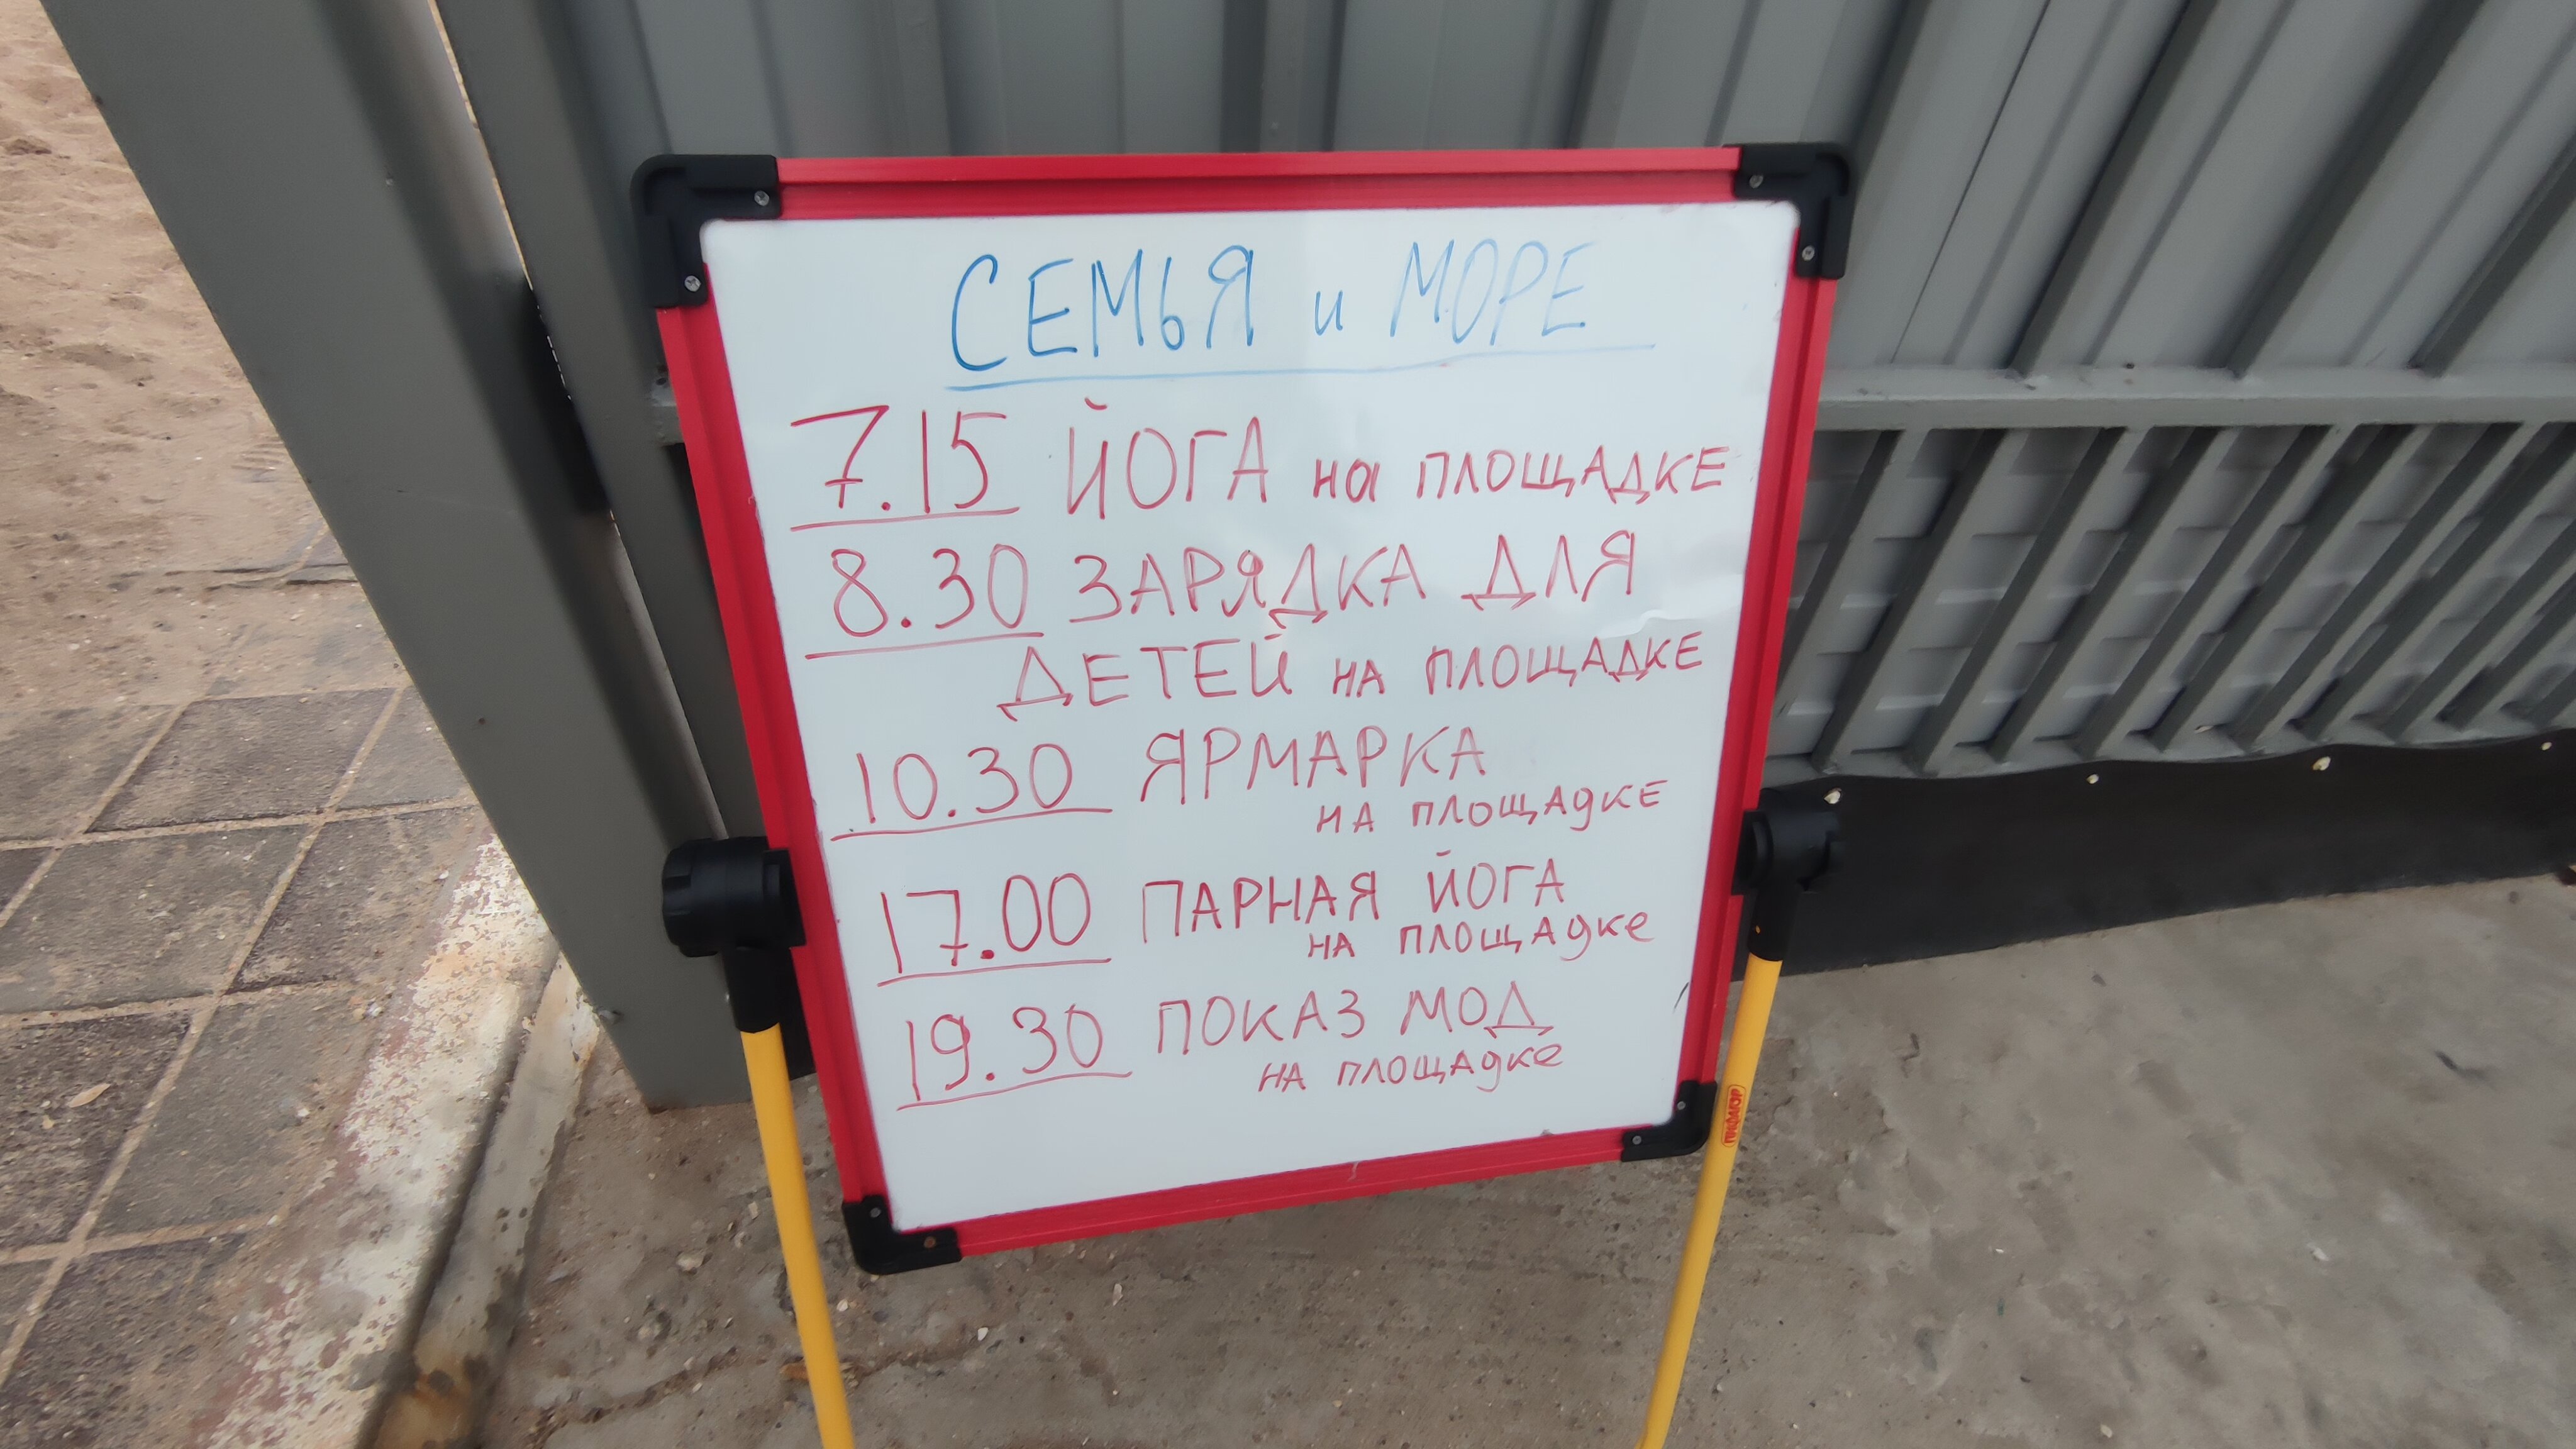 СЕМЬЯ и МОРЕ
7.15 ЙОГА на ПЛОЩАДКЕ
8.30 ЗАРЯДКА ДЛЯ
ДЕТЕЙ НА ПЛОЩАДКЕ
10.30 ЯРМАРКА
НА ПЛОЩАДКЕ
17.00 ПАРНАЯ ЙОГА
НА ПЛОЩАДКе
19.30 ПОКАЗ МОД
НА ПЛОЩАДКе